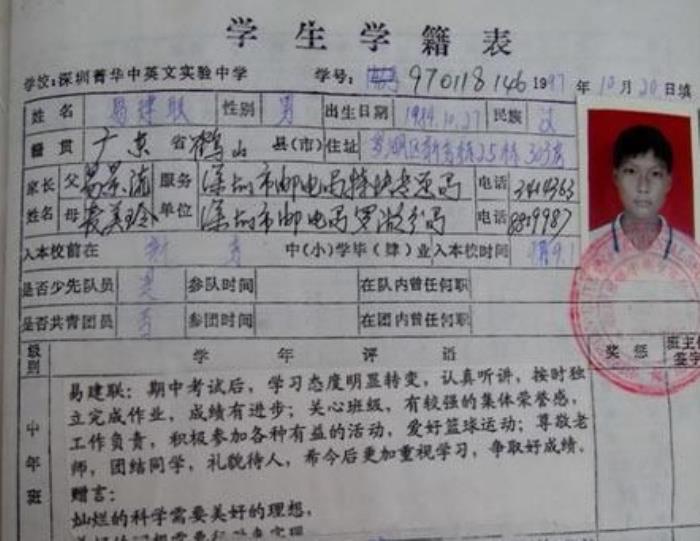 学生学籍表
学校：深圳菁华中英文实验中学 学号：970118146 1997年10月20日填
姓名 易建联 性别 男 出生日期 1984.10.27 民族 汉
籍贯 广东省鹤山县(市) 住址 罗湖区新秀村25栋303房
家长姓名 父 易景流 服务单位 深圳市邮电局特快专递局 电话
母 麦美玲 深圳市邮电局罗湖分局 电话
入本校前在 新秀 中(小)学毕(肄)业入本校时间
是否少先队员 是 参队时间 在队内曾任何职
是否共青团员 否 参团时间 在团内曾任何职
级别 学年评语 奖惩 班主任签字
中年班
易建联：期中考试后，学习态度明显转变，认真听讲，按时独
立完成作业，成绩有进步；关心班级，有较强的集体荣誉感，
工作负责，积极参加各种有益的活动，爱好篮球运动；尊敬老
师，团结同学，礼貌待人，希今后更加重视学习，争取好成绩。
赠言：
灿烂的科学需要美好的理想，